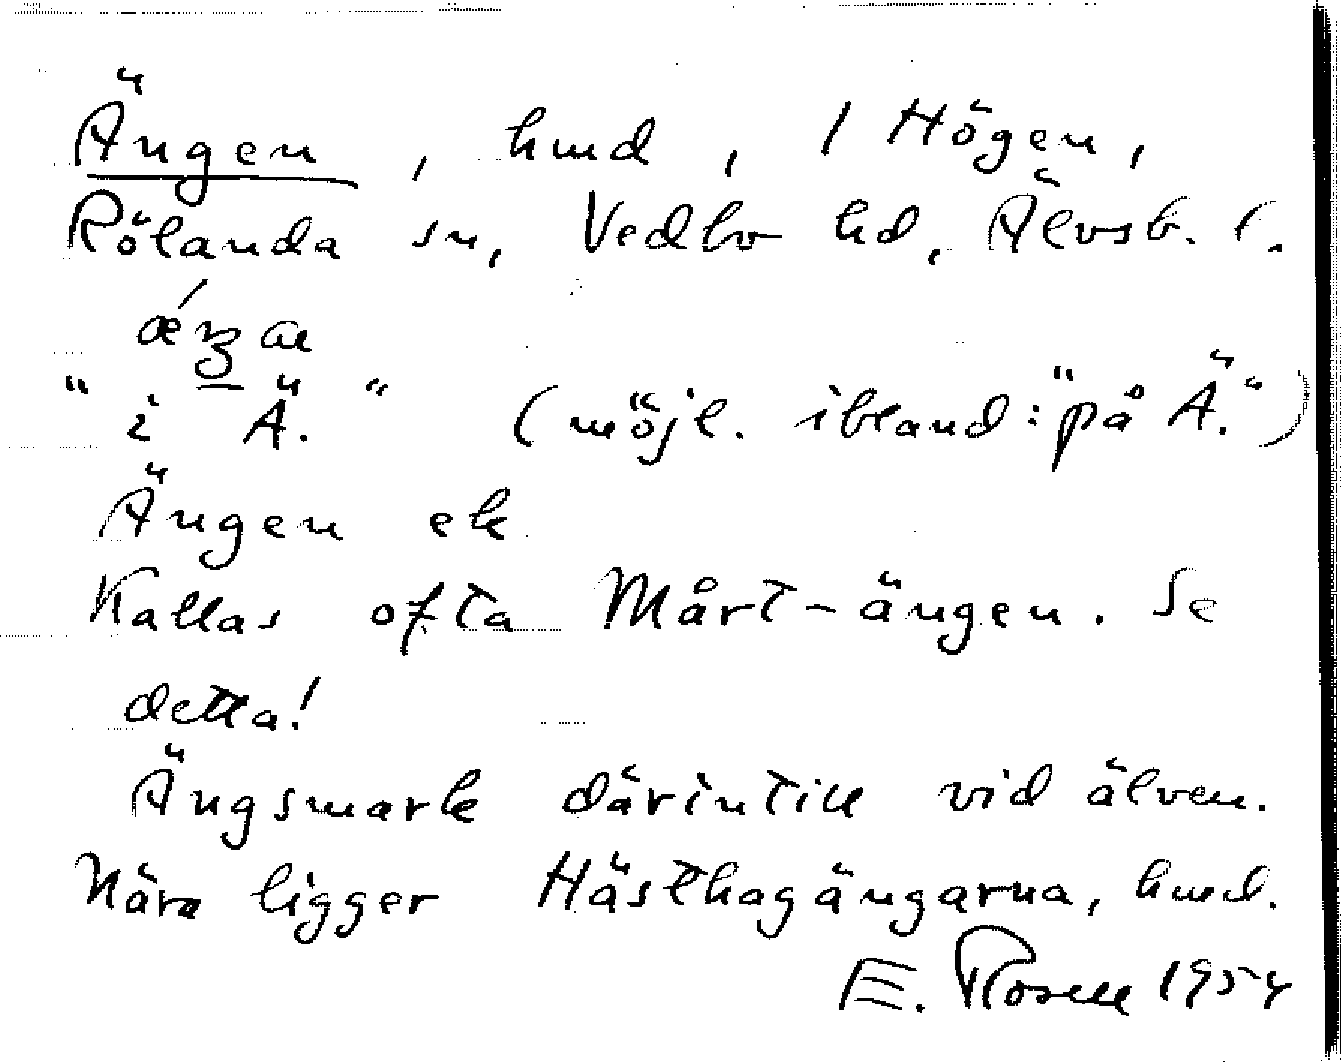 Ängen, hmd, 1 Högen,
Rölanda sn, Vedbo hd, Älvsb. l.
"i Ä." (möjl. ibland: "på Ä.")
Ängen ek
Kallas ofta Mårt-ängen. Se
detta!
Ängsmark därintill vid älven.
Nära ligger Hästhagängarna, hmd.
E. Rosell 1954